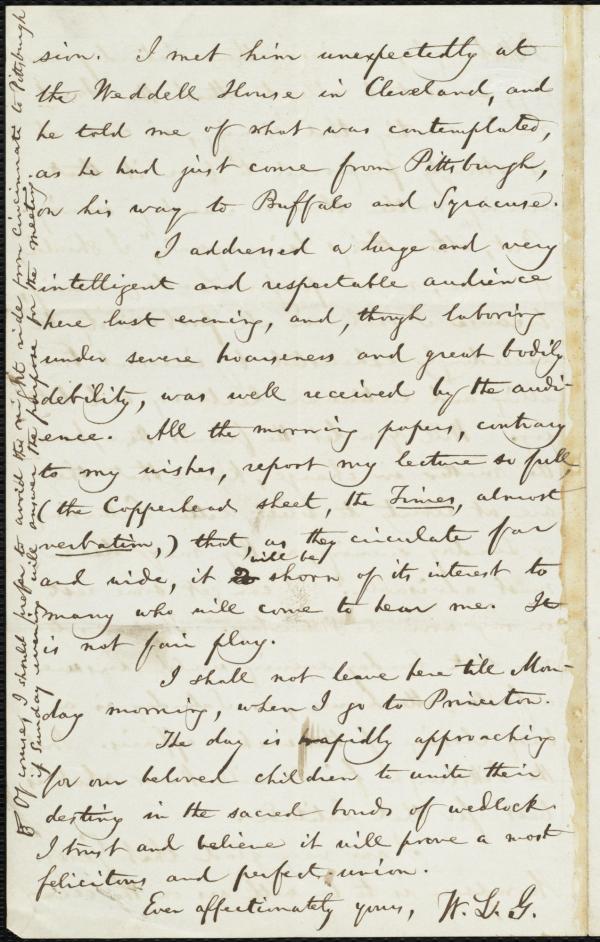 sion. I met him unexpectedly at
the Weddell House in Cleveland, and
he told me of what was contemplated,
as he had just come from Pittsburgh,
on his way to Buffalo and Syracuse.
I addressed a large and very
intelligent and respectable audience
here last evening, and, though laboring
under severe hoarseness and great bodily
debility, was well received by the audi-
ence. All the morning papers, contrary
to my wishes, report my lecture so full,
(the Copperhead sheet, the Times, almost
verbatim,) that, as they circulate far
and wide, it will be shorn of its interest to
many who will come to hear me. It
is not fair play.
I shall not leave here till Mon-
day morning, when I go to Princeton.
The day is rapidly approaching
for our beloved children to unite their
destiny in the sacred bonds of wedlock.
I trust and believe it will prove a most
felicitous and perfect union.
Ever affectionately yours, W. L. G.
Of course, I should prefer to avoid the night ride from Cincinnati to Pittsburgh
if Sunday evening will answer the purpose for the meeting.